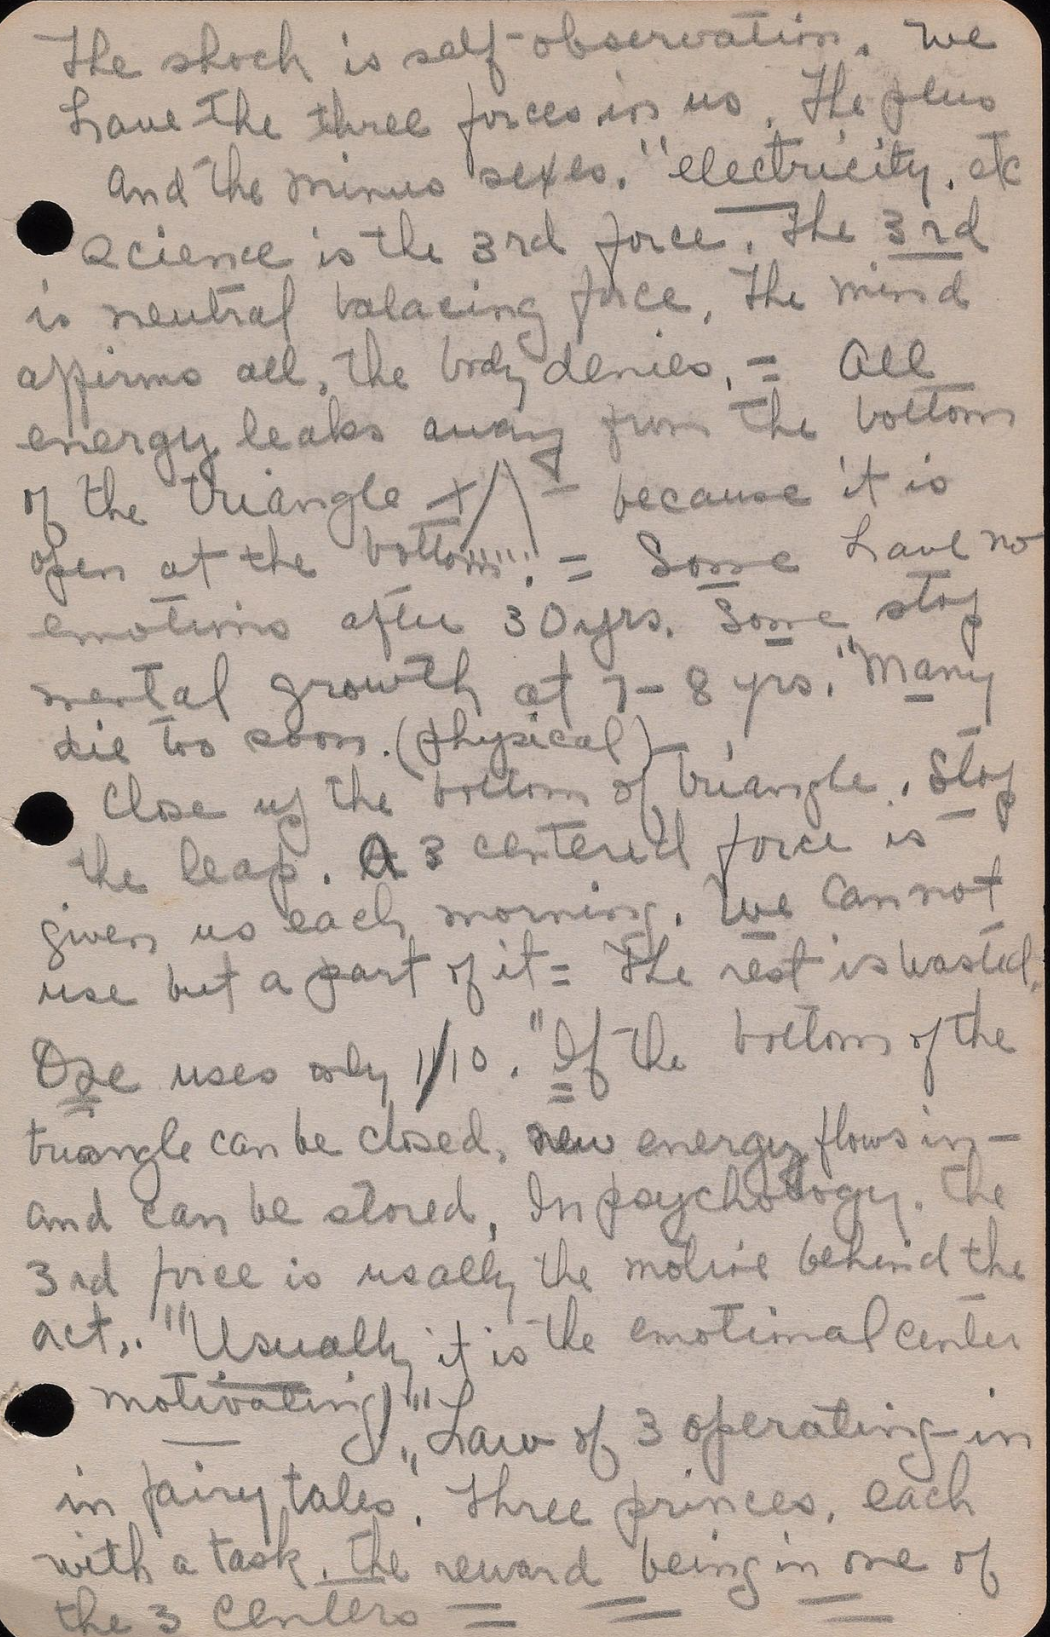 The shock is self-observation. We
have the three forces in us. The plus
and the minus sexes. "electricity. etc
Science is the 3rd force. The 3rd
is neutral balacing force. The mind
affirms all, the body denies. = All
energy leaks away from the bottom
of the triangle + /\ - because it is
open at the bottom. = Some have no
emotions after 30 yrs. Some stop
mental growth at 7-8 yrs. "Many
die too soon. (physical)
Close up the bottom of triangle. Stop
the leap. A 3 centered force is
given us each morning. We cannot
use but a part of it = The rest is wasted.
One uses only 1/10. "If the bottom of the
triangle can be closed, new energy flows in -
and can be stored. In psychology. the
3rd force is usally the motive behind the
act.. "Usually it is the emotional center
motivating)." "Law of 3 operating - in
in fairy tales. Three princes, each
with a task. the reward being in one of
the 3 centers =